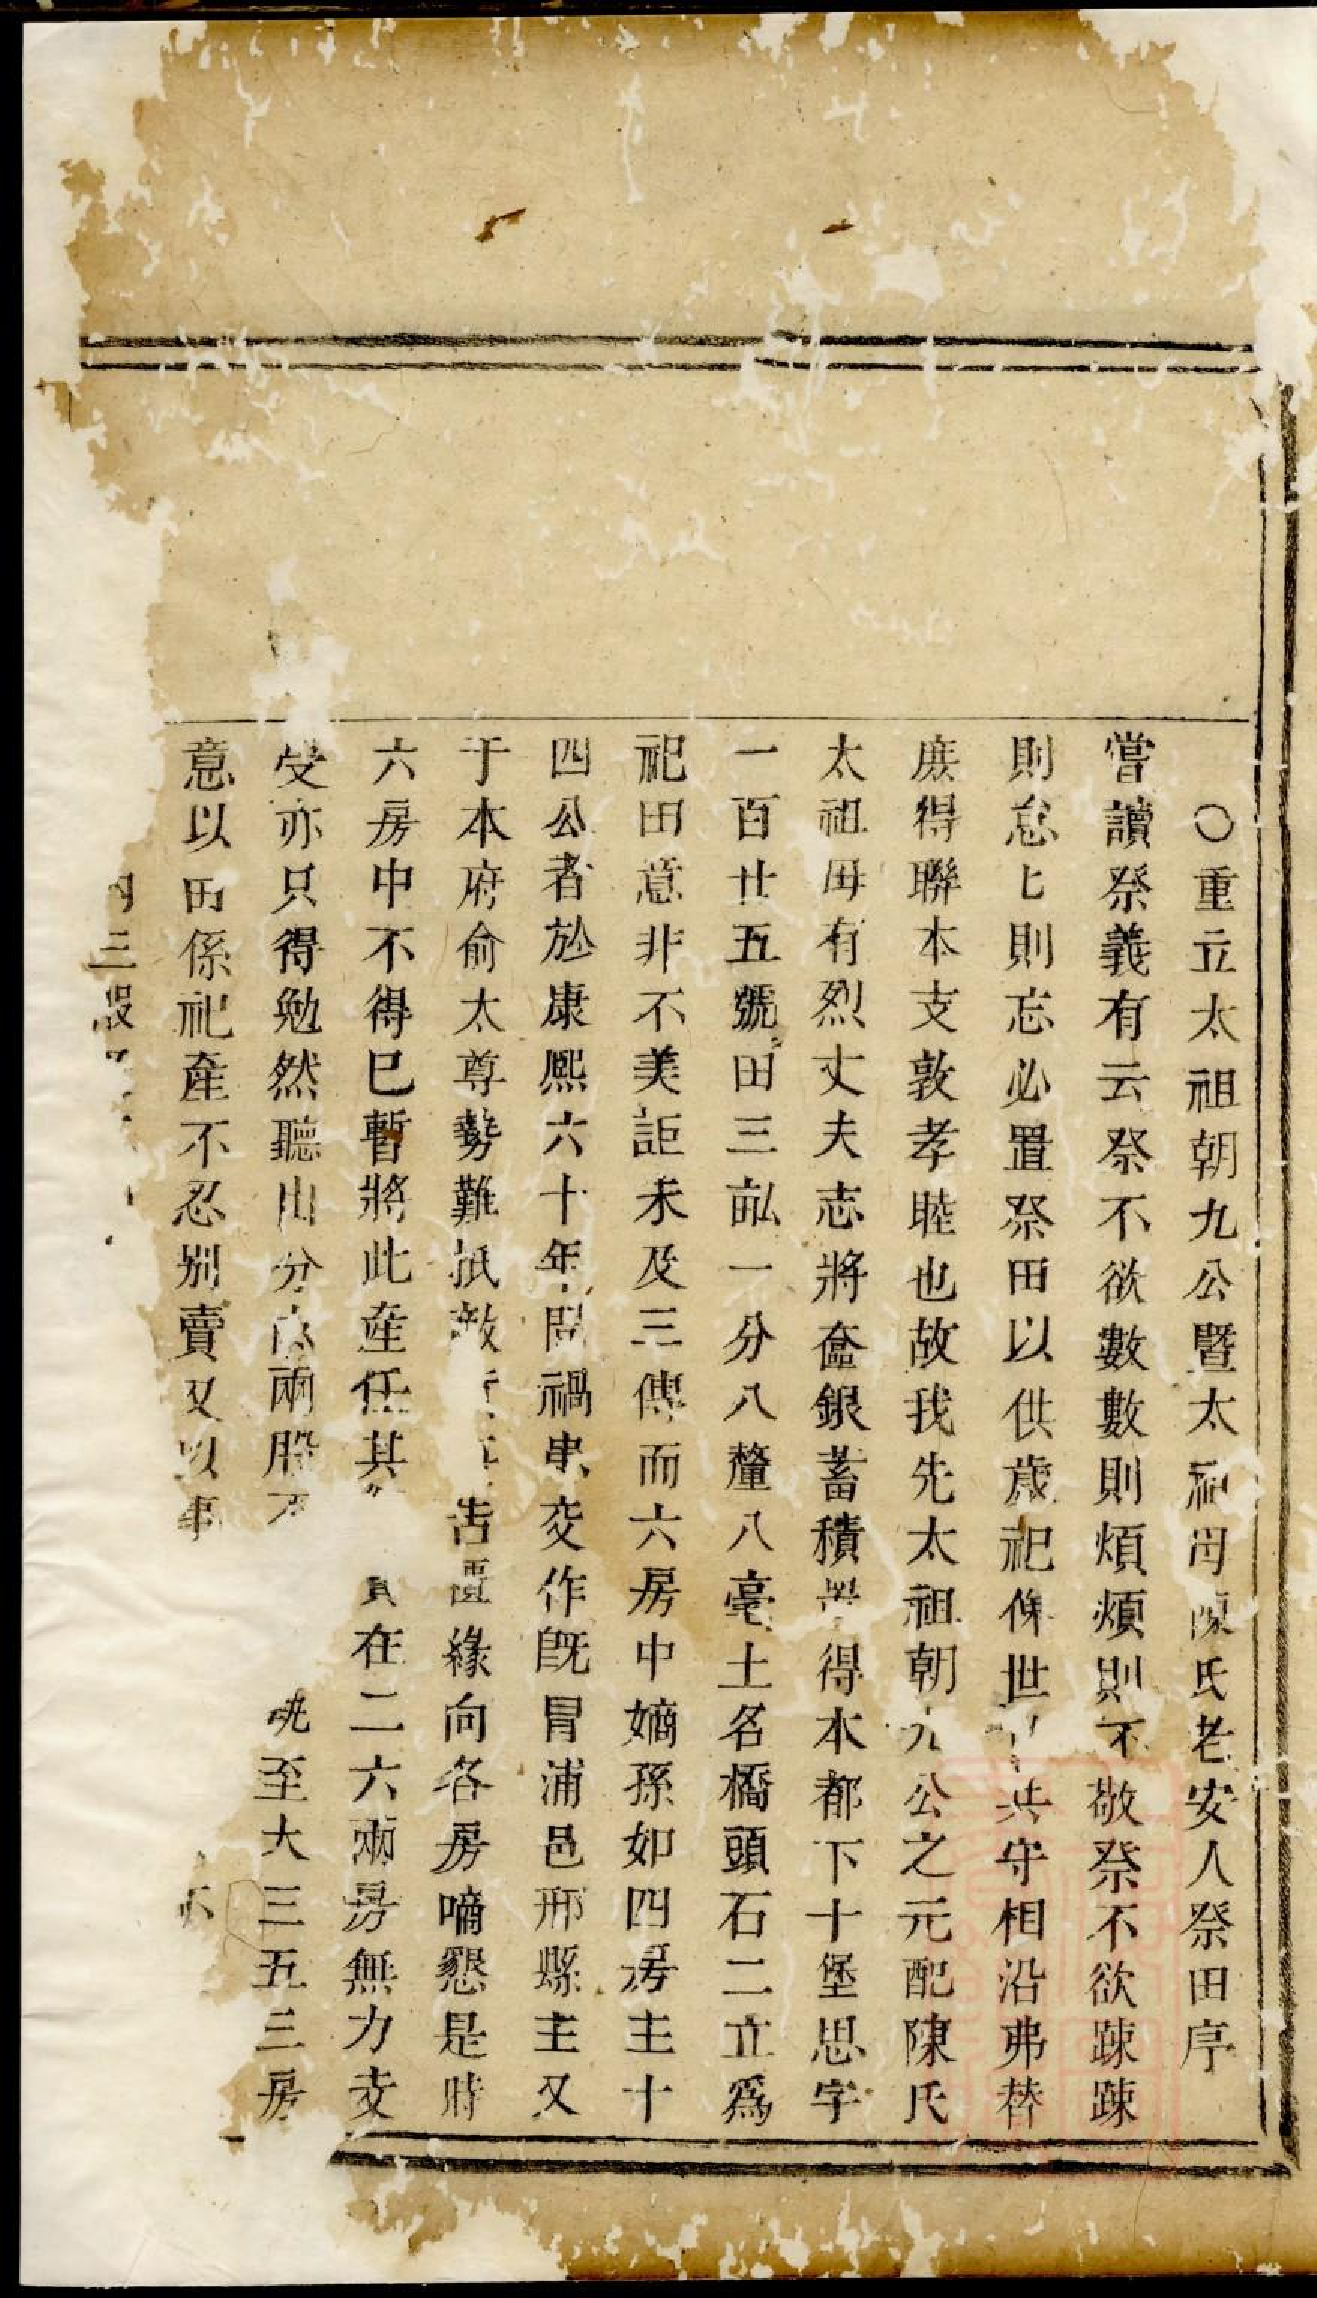 〇重立太祖朝九公暨太祖母陳氏老安人祭田序
嘗讀祭義有云祭不欲數數則煩煩則不敬祭不欲踈踈
則怠匕則忘必置祭田以供歳祀俾世共守相沿弗替
庶得聯本支敦孝睦也故我先太祖朝九公之元配陳氏
太祖母有烈丈夫志將奩銀蓄積得本都下十堡思字
一百廿五號田三畆一分八釐八毫土名橋頭石二立爲
祀田意非不美詎未及三傳而六房中嫡孫如四房主十
四公者於康熙六十年間禍患交作旣冐浦邑邢縣主又
于本府俞太尊勢難抵敵告匱緣向各房嘀懇是時
六房中不得巳暫將此産任其在二六兩房無力支
受亦只得勉然聽分兩股至大三五三房
意以田係祀産不忍别賣又以事亦
三